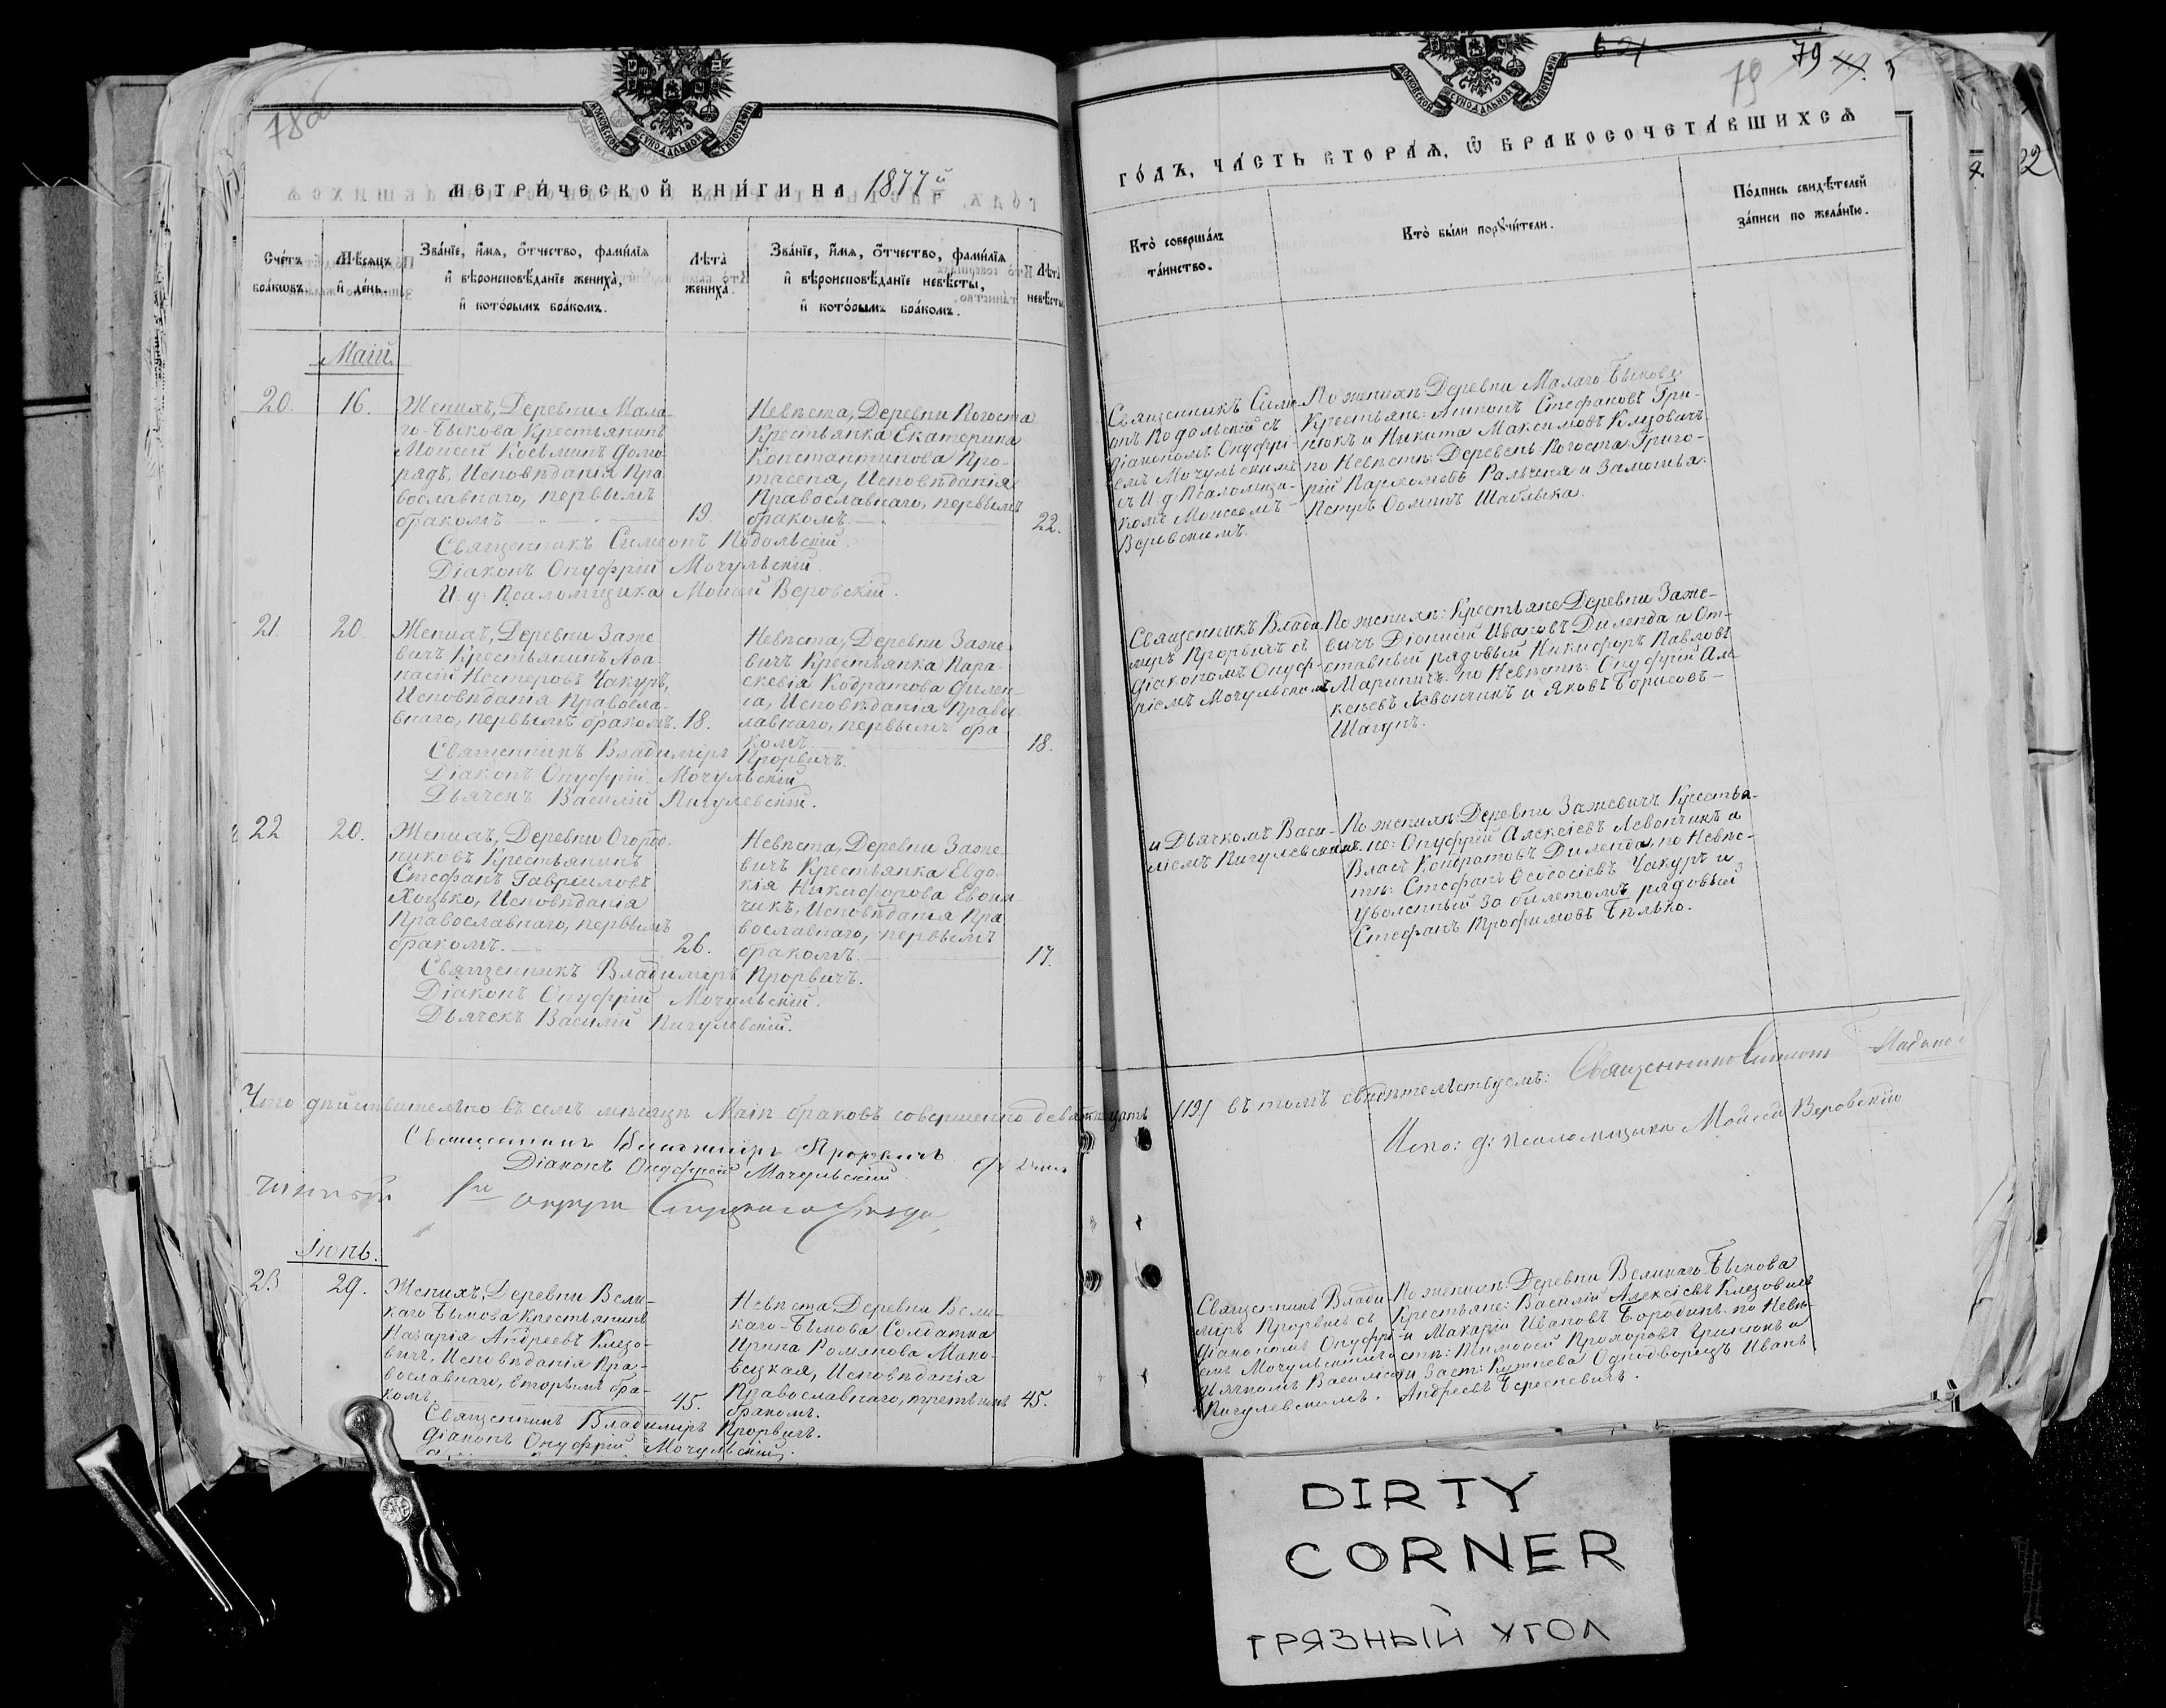 78об
МЕТРИ́ЧЕСКОЙ КНИ́ГИ НА 1877й
Сче́тъ бра́ковъ.
Мѣ́сяцъ и҆ де́нь.
Зва́нїе, и҆́мя, ѻ҆́тчество, фами́лїя и҆ вѣроисповѣ́данїе жениха̀, и҆ кото́рымъ бра́комъ.
Лѣ́та жениха̀.
Зва́нїе, и҆́мя, ѻ҆́тчество, фами́лїя и҆ вѣроисповѣ́данїе невѣ́сты, и҆ кото́рымъ бра́комъ.
Лѣ́та невѣ́сты
Маій.
20.
16.
Женихъ, Деревни Мала-
го-Быкова Крестьянинъ
Моисей Косьминъ Домо-
радъ, Исповѣданія Пра-
вославнаго, первымъ
бракомъ.
19.
Невѣста, Деревни Погоста
Крестьянка Екатерина
Константинова Про-
тасеня, Исповѣданія
Православнаго, первымъ
бракомъ.
22.
Священникъ Симеонъ Подольскій.
Діаконъ Онуфрій Мочульскій.
И. д. Псаломщика Моисей Веровскій.
21.
20.
Женихъ, Деревни Заже-
вичъ Крестьянинъ Аѳа-
насій Нестеровъ Чакуръ,
Исповѣданія Правосла-
внаго, первымъ бракомъ.
18.
Невѣста, Деревни Заже-
вичъ Крестьянка Пара-
скевія Кодратова
Исповѣданія Право-
лавнаго, первымъ бра-
комъ.
18.
Священникъ Владиміръ Прорвичъ.
Діаконъ Онуфрій Мочульскій
Дьячекъ Василій Пигулевскій.
22
20.
Женихъ, Деревни Огород-
никовъ Крестьянинъ
Стефанъ Гавріиловъ
Хоцько, Исповѣданія
Православнаго, первымъ
бракомъ.
26.
Невѣста, Деревни Заже-
вичъ Крестьянка Евдо-
кія Никифорова
Исповѣданія Пра-
вославнаго, первымъ
бракомъ.
17.
Священникъ Владиміръ Прорвичъ.
Діаконъ Онуфрій Мочульскій.
Дьячекъ Василій Пигулевскій.
Что дѣйствительно въ семъ мѣсяцѣ Маіи браковъ совершенно девятнцать
Священникъ Владиміръ Прорвичъ
Діаконъ Онуфрій Мочульскій
округи Слуцкаго уѣзда,
Іюнь.
23
29.
Женихъ, Деревни Вели-
каго Быкова Крестьянинъ
Назарія Андреевъ Клезо-
вичъ, Исповѣданія Пра-
вославнаго, вторымъ бра-
комъ.
45.
Невѣста, Деревни Вели-
каго-Быкова Солдатка
Ирина Романова Мако-
вецкая, Исповѣданія
Православнаго, третьимъ
бракомъ.
45.
Священникъ Владиміръ Прорвичъ.
Діаконъ Онуфрій Мочульскій.
79
79
ГО́ДЪ, ЧА́СТЬ ВТОРА́Я, Ѽ БРАКОСОЧЕТА́ВШИХСЯ
Кто̀ соверша́лъ та́инство.
Кто̀ бы́ли порꙋчи́тели.
По́дпись свидѣ́телей за́писи по жела́нїю.
Священникъ Симе-
онъ Подольскій съ
діакономъ Онуфрі-
емъ Мочульскимъ
съ И. д. Псаломщи-
комъ Моисеемъ
Веровскимъ.
По женихѣ: Деревни Малаго-Быкова
Крестьяне: Антонъ Стефановъ Гри-
нюкъ и Никита Максимовъ Клезовичъ
по Невѣстѣ: Деревень: Погоста Григо-
рій Пархомовъ Ральченя и Замошья:
Петръ Ѳоминъ Шаблыка.
Священникъ Влади-
миръ Прорвичъ съ
діакономъ Онуф-
ріемъ Мочульскимъ
По женихѣ: Крестьяне Деревни Заже-
вичъ Діонисій Ивановъ Диленда и От-
ставный рядовый Никифоръ Павловъ
Мариничъ. по Невѣстѣ: Онуфрій Але-
ксѣевъ Левончикъ и Яковъ Борисовъ
Шагунъ.
и Дьячкомъ Васи-
ліемъ Пигулевскимъ.
По женихѣ: Деревни Зажевичъ Крестья-
не: Онуфрій Алексіевъ Левончикъ и
Власъ Кондратовъ Диленда, по Невѣс-
тѣ: Стефанъ Ѳеодосіевъ Чакуръ и
уволенный за билетомъ рядовый
Стефанъ Трофимовъ Бѣлько.
/19/ въ томъ свидѣтельствуемъ: Священникъ Симеонъ
Испо: д: псаломщика Моисей Веровскій
Священникъ Влади-
міръ Прорвичъ съ
діакономъ Онуфрі-
емъ Мочульскимъ и
дьячкомъ Василіемъ
Пигулевскимъ.
По женихѣ: Деревни Великаго-Быкова
Крестьяне: Василій Алексіевъ Клезовичъ
и Макарій Ивановъ Бородичъ. по Невѣ-
стѣ: Тимоѳей Прохоровъ Гринюкъ и
Заст: Кутнева Однодворецъ Иванъ
Андреевъ Бересневичъ.
DIRTY
CORNER
ГРЯЗНЫЙ УГОЛ